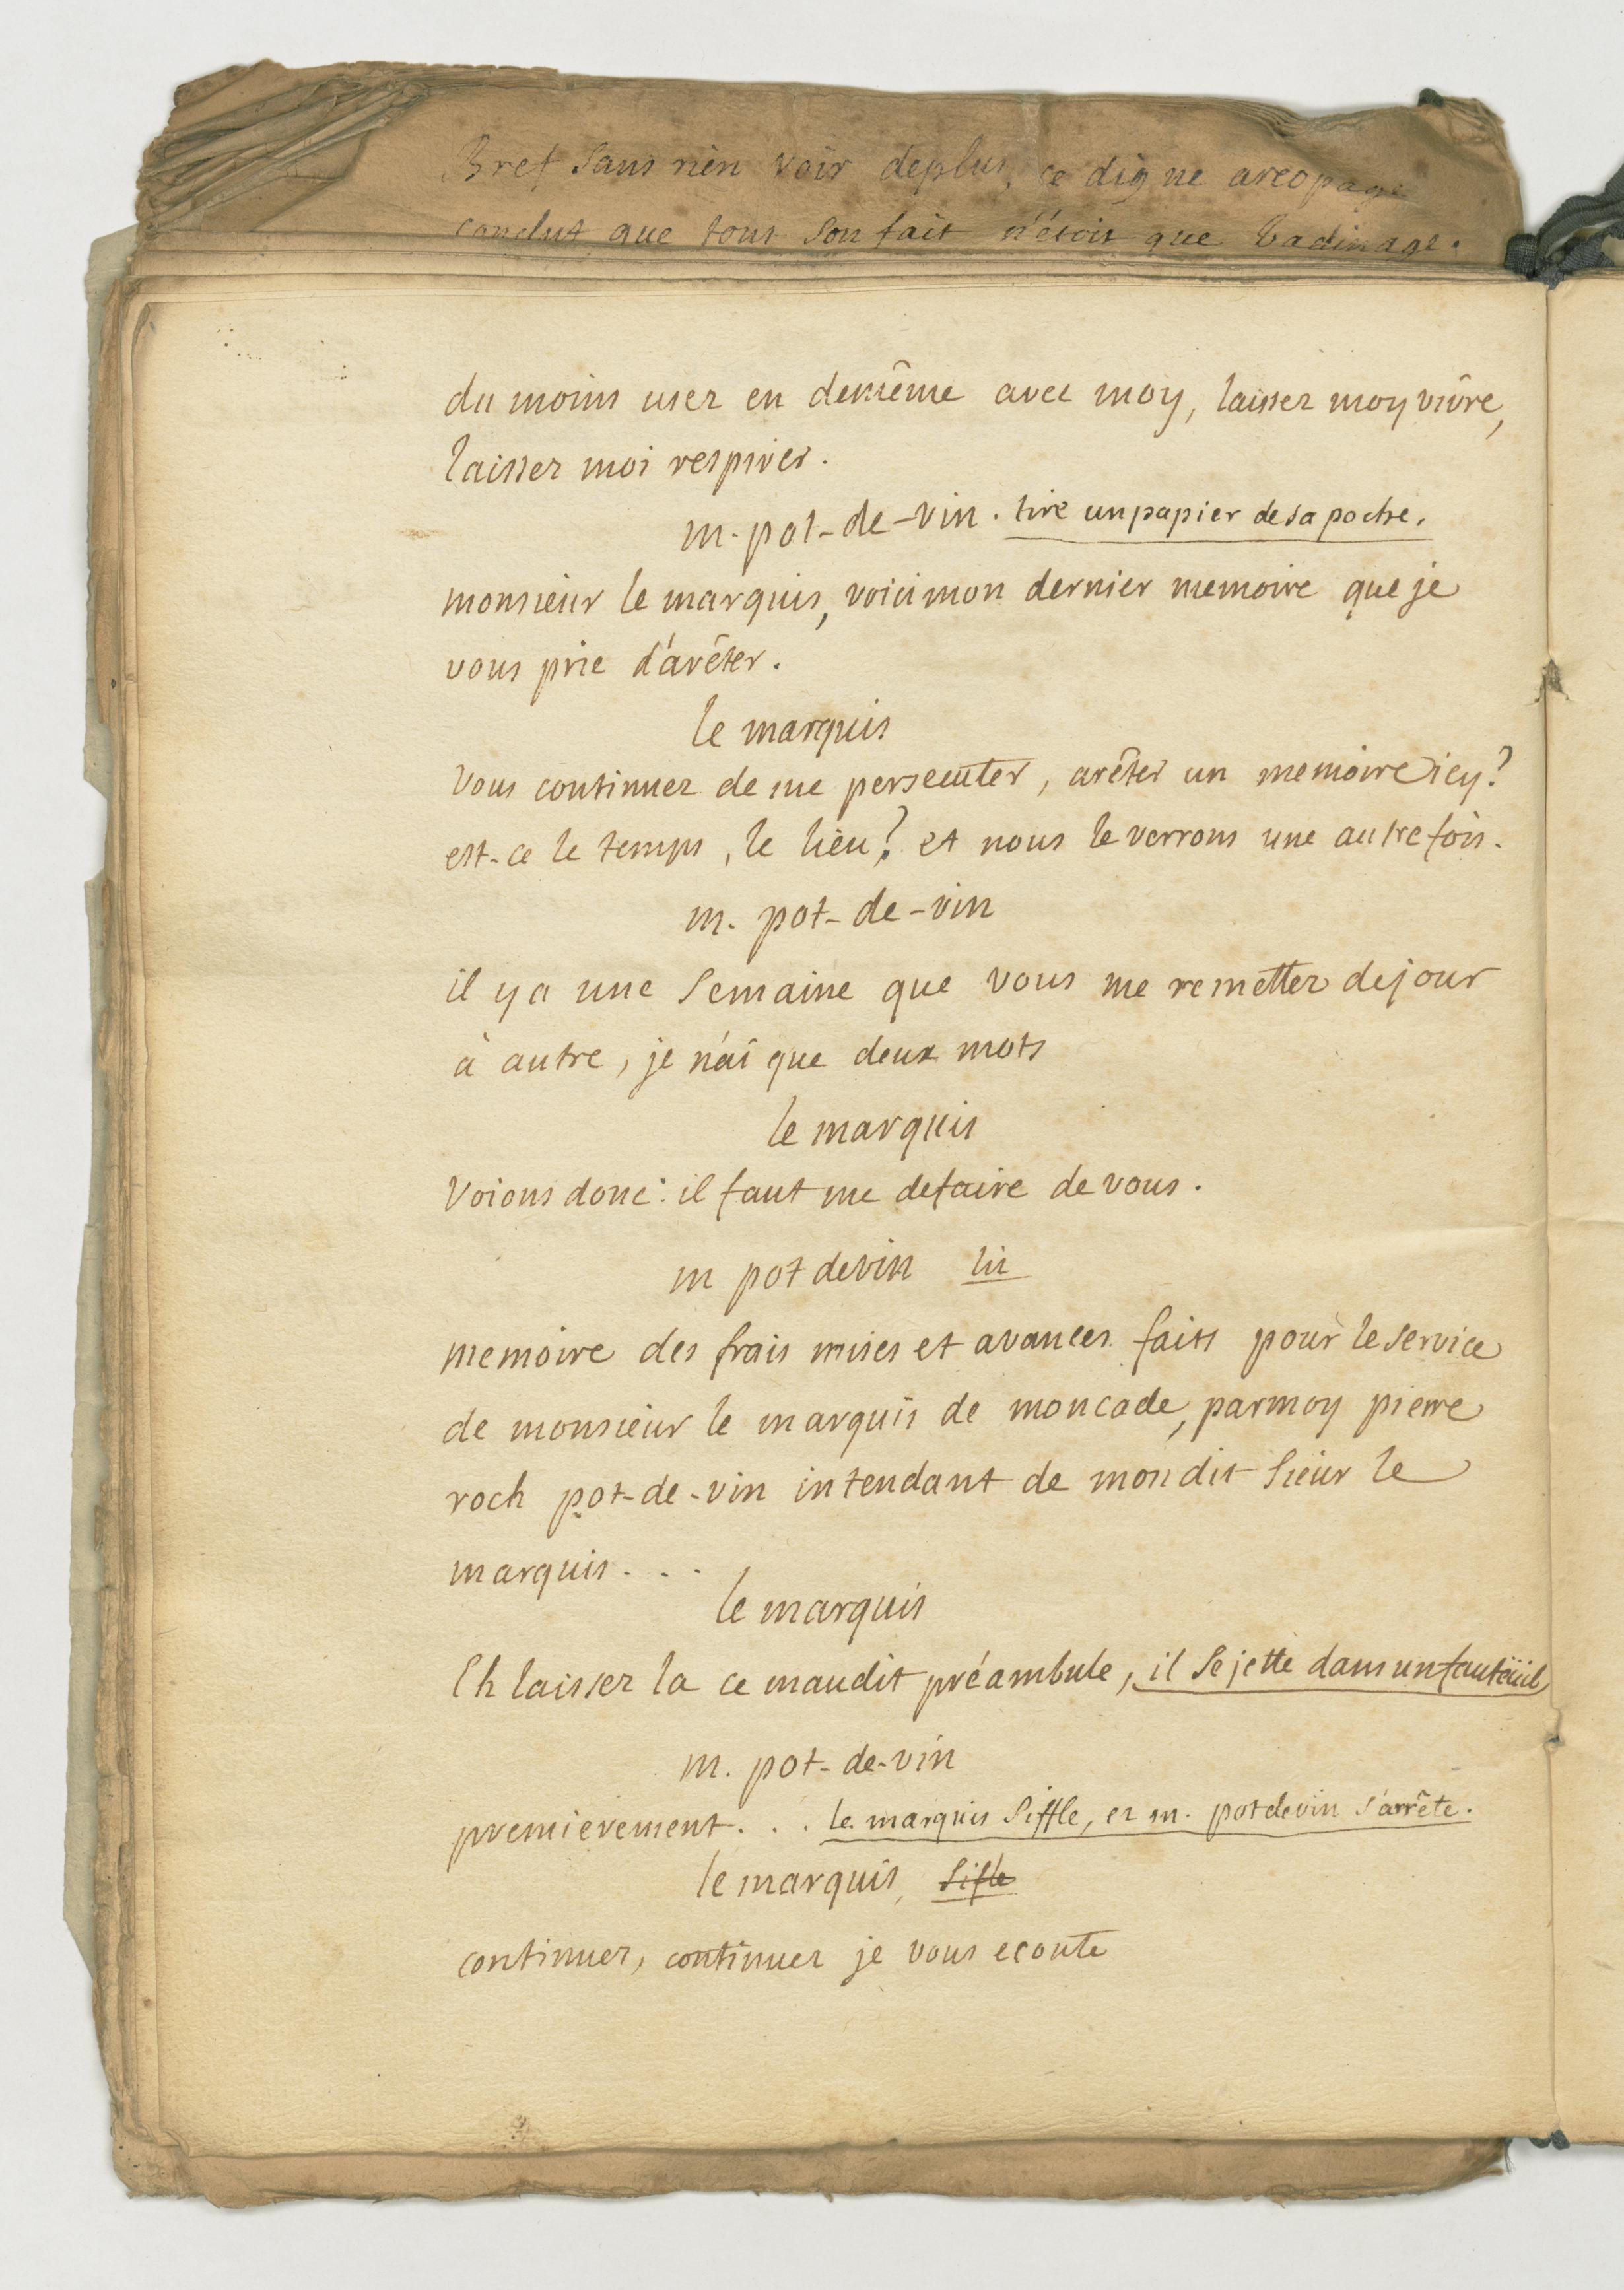 Bref sans rien voir deplus, ce digne areopage
conclut que tout son fait n'étoit que badinage.
du moins usez en demême avec moy, laissez moy vivre,
laissez moi respirer.
m. pot-de-vin. tire un papier de sa poche.
monsieur le marquis, voici mon dernier memoire que je
vous prie d'arêter.
le marquis
Vous continuez de me persecuter, arêter un memoire icy?
est-ce le temps, le lieu? et nous le verrons une autre fois.
m. pot-de-vin
il y a une semaine que vous me remettez dejour
à autre, je n'ai que deux mots
le marquis
Voions donc: il faut me defaire de vous.
m pot devin lit
memoire des frais mises et avances faits pour le service
de monsieur le marquis de moncade, parmoy pierre
roch pot-de-vin intendant de mondit sieur le
marquis...
le marquis
Eh laissez la ce maudit préambule, il se jette dans un fauteüil
m. pot-de-vin
premierement... le marquis siffle, et m. potdevin s'arrête.
le marquis, sifle
continuez, continuez je vous ecoute